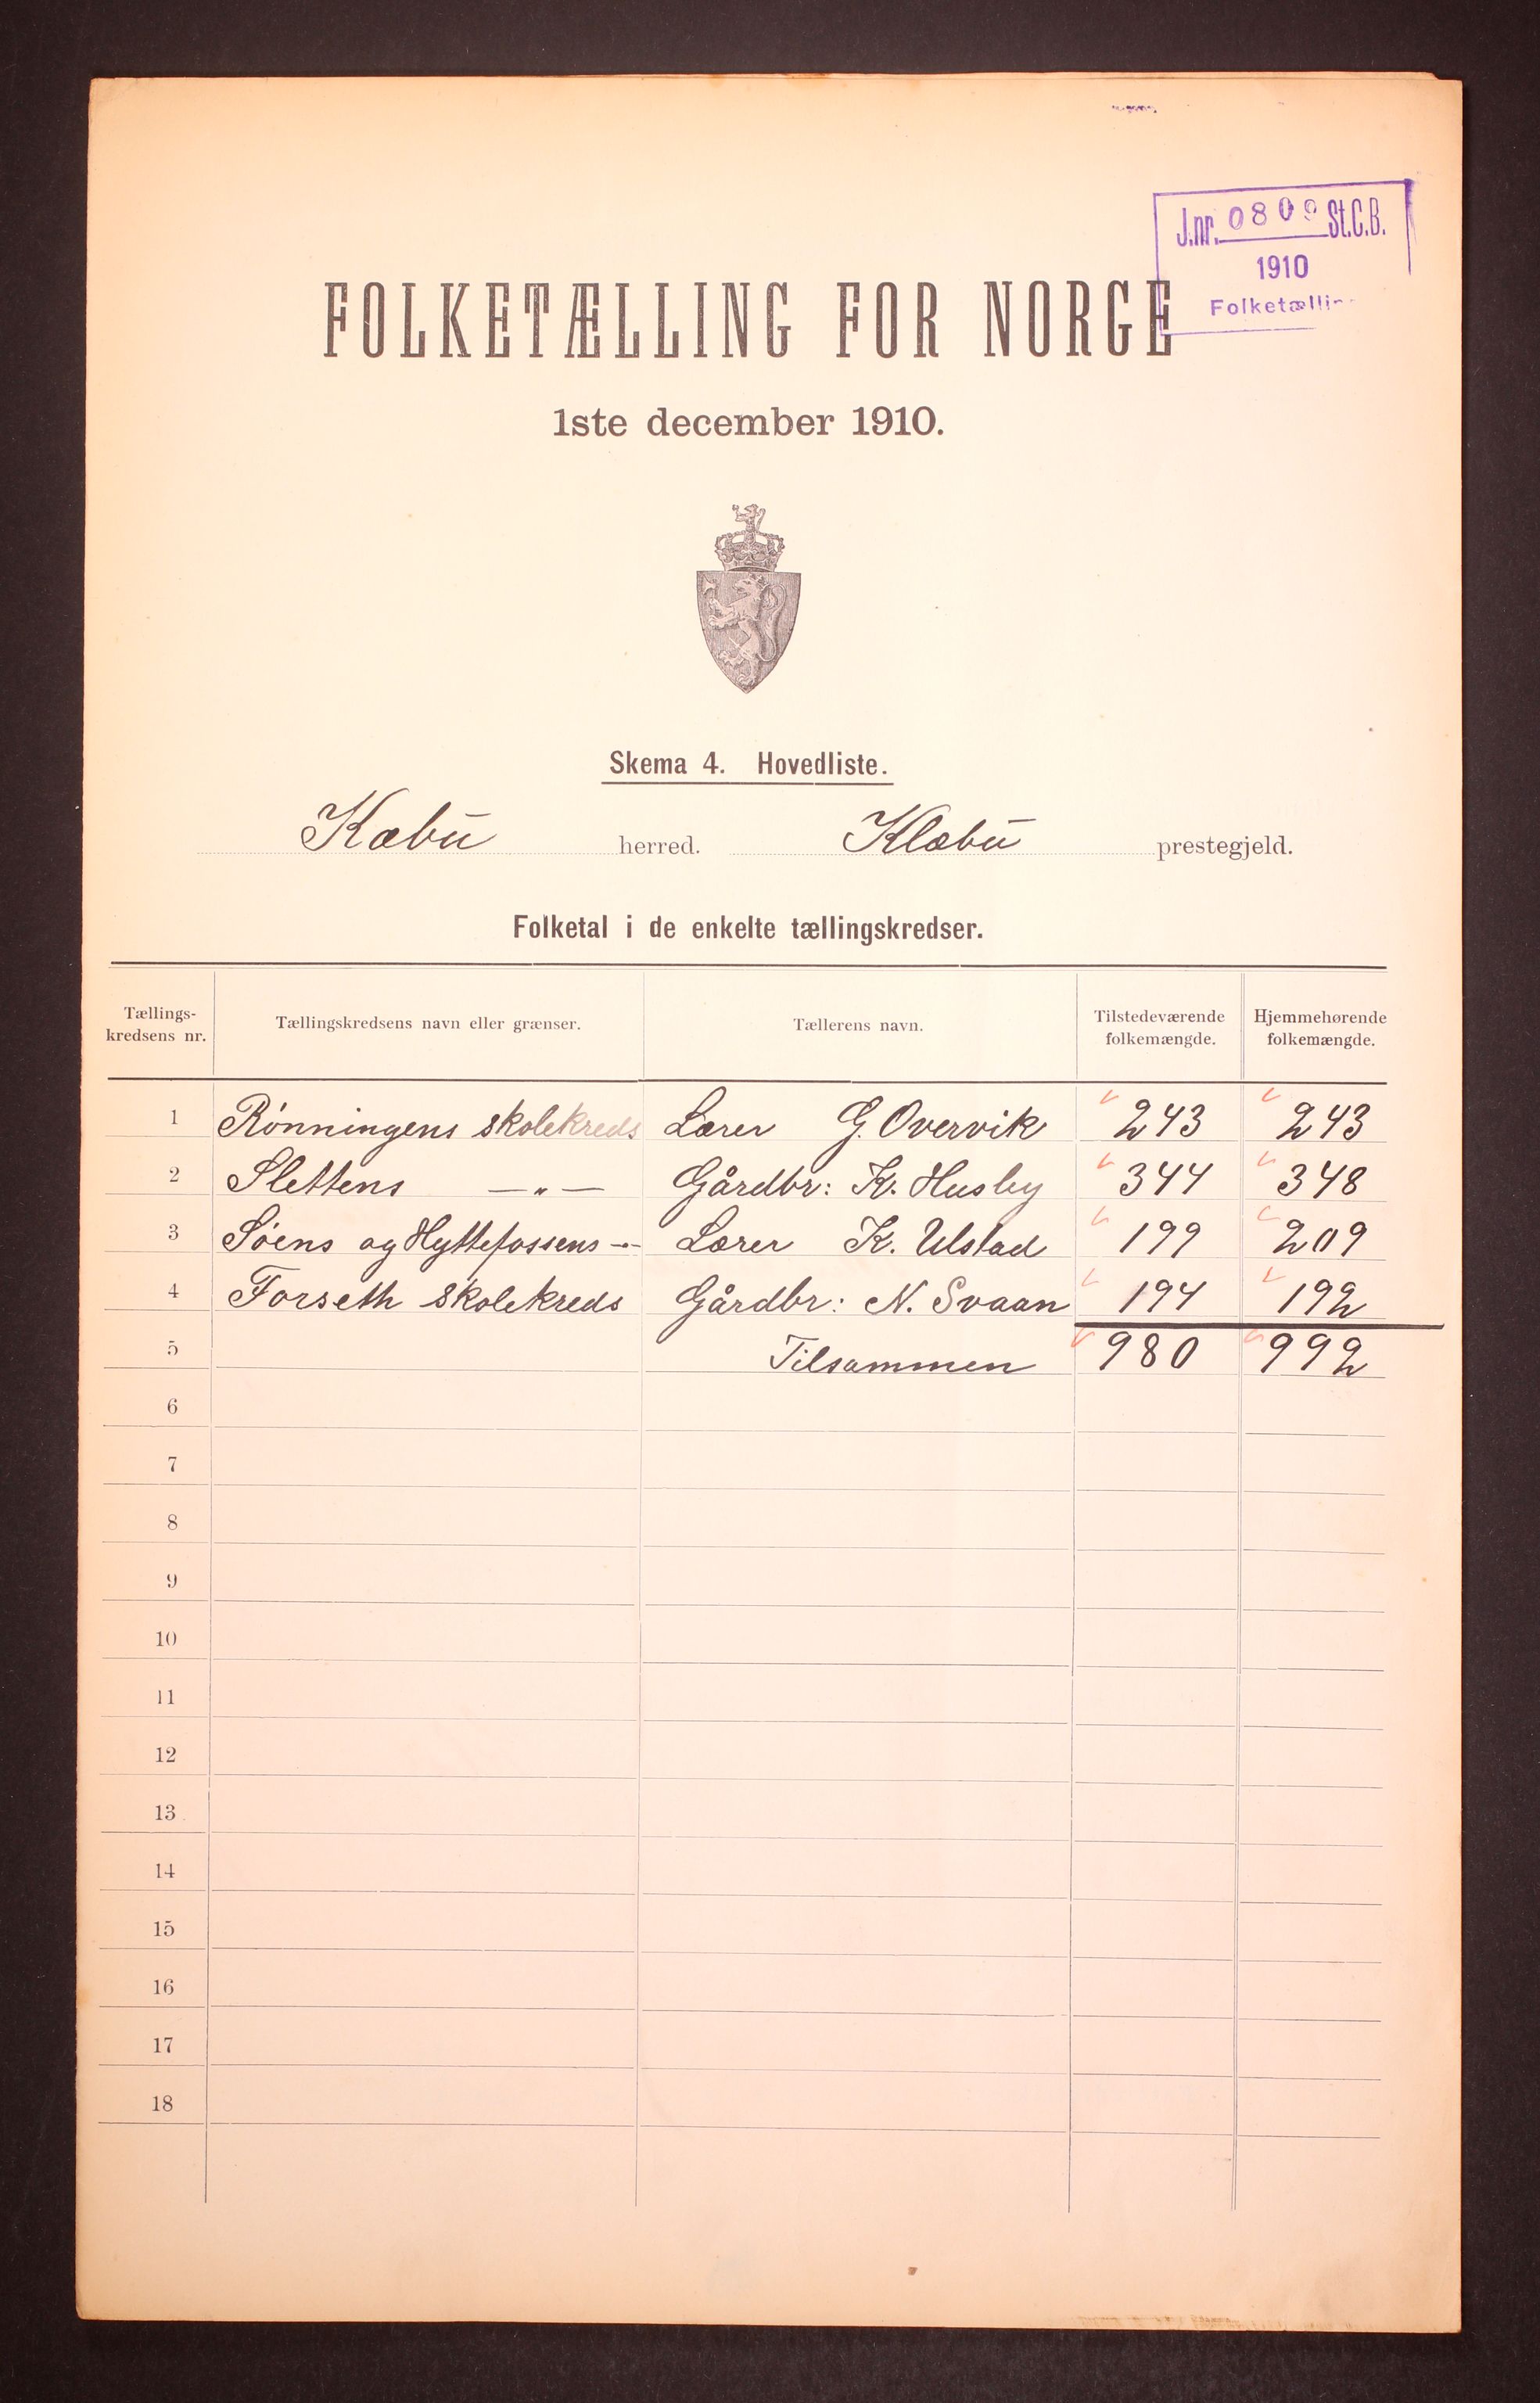 J.nr. 0809 St.C.B.
1910
Folketælling
FOLKETÆLLING FOR NORGE
1ste december 1910.
Skema 4. Hovedliste.
Kæbu herred. Klæbu prestegjeld.
Folketal i de enkelte tællingskredser.
Tællings-kredsens nr. Tællingskredsens navn eller grænser. Tællerens navn. Tilstedeværende folkemængde. Hjemmehørende folkemængde.
1 Rønningens skolekreds Lærer G. Overvik 243 243
2 Slettens —〃— Gårdbr: K. Husby 344 348
3 Søens og Hyttefossens -〃- Lærer K. Ulstad 199 209
4 Forseth skolekreds Gårdbr: N. Svaan 194 192
5 Tilsammen 980 992
6
7
8
9
10
11
12
13
14
15
16
17
18